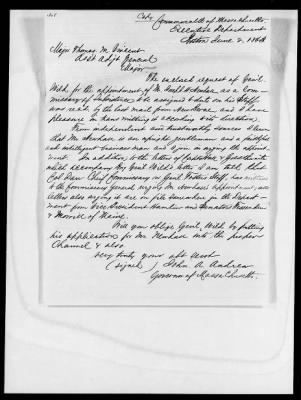 Copy Commonwealth of Massachusetts
Executive Department
Boston June 2, 1864
Major Thomas M. Vincent
Asst Adjt General
Major
The enclosed request of Genl.
Wild, for the appointment of Mr. as a Com-
missary of Subsistence to be assigned to duty on his Staff
was recd. by the last mail from and I have
pleasure in transmitting it according to its direction.
From independent and trustworthy sources I learn
that Mr. is an upright gentleman and a faithful
and intelligent business man and I join in urging the appoint-
ment. In addition to the letters of
which accompany Genl. Wild's letter I am told that
Col. Chief Commissary on Genl. Foster's Staff, has written
to the Commissary General urging Mr. appointment, and
letters also urging it are on file somewhere in the Depart-
ment from Vice President Hamlin and Senators Fessenden
& Morrill of Maine.
Will you oblige Genl. Wild by putting
his application for Mr. into the proper
Channel & also
Very truly your obt Servt
(signed) John A. Andrew
Governor of Massachusetts.